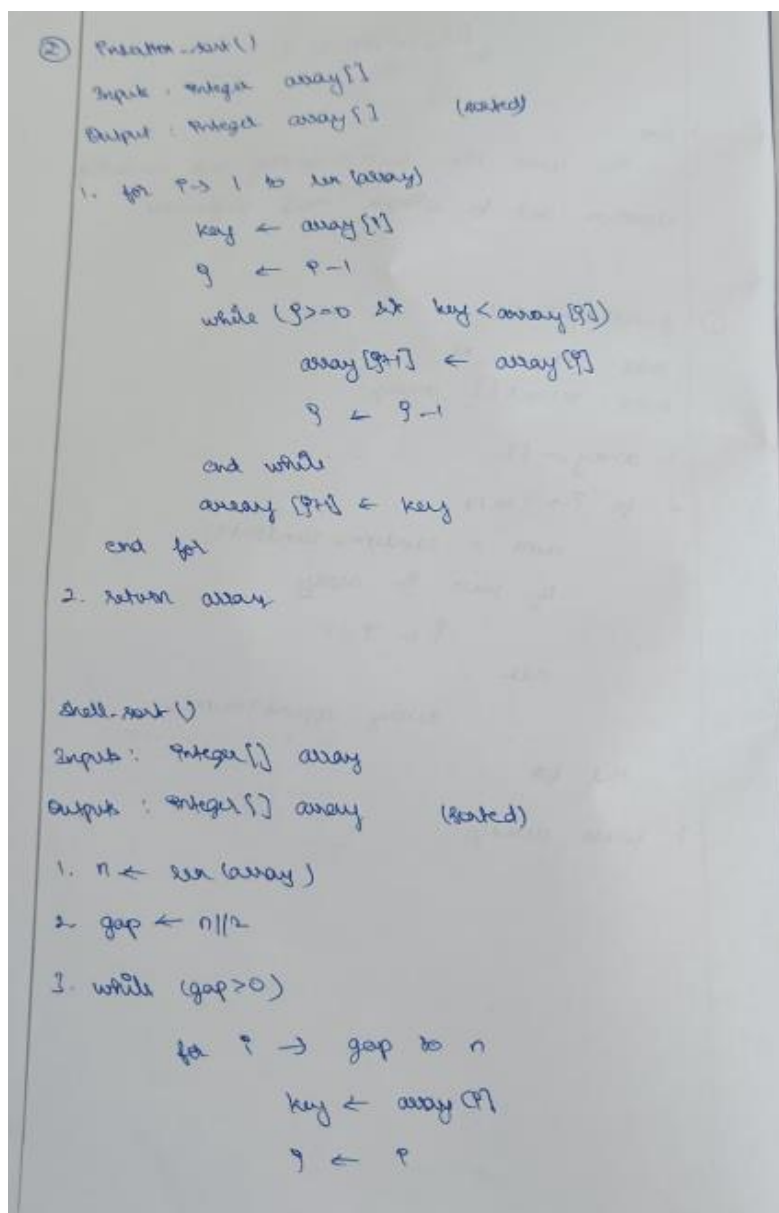 ② Insertion_sort()
Inputs : Integer array[]
Output : Integer array[] (sorted)
1. for i → 1 to len(array)
key ← array[i]
j ← i-1
while (j>=0 && key < array[j])
array[j+1] ← array[j]
j ← j-1
end while
array [j+1] ← key
end for
2. return array
Shell-sort()
Inputs : Integer[] array
Outputs : Integer[] array (sorted)
1. n ← len(array)
2. gap ← n//2
3. while (gap>0)
for i → gap to n
key ← array[i]
j ← i